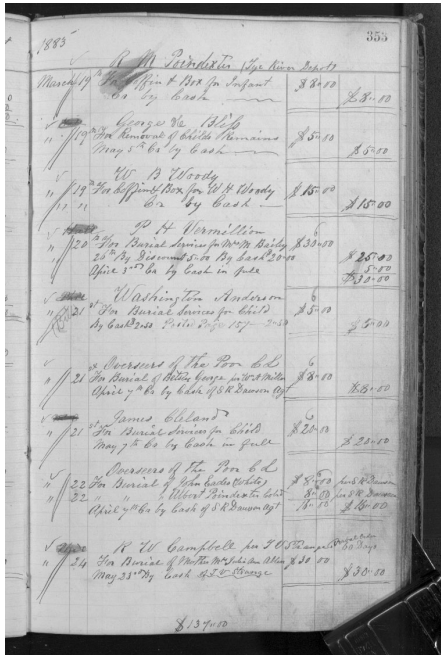 1885
353
R M Poindexter (Tye River Depot)
March 19th For Coffin & Box for Infant $8-00
Cr by Cash $8-00
George
" 19th For Removal of Childs Remains $5-00
May 5th Cr by Cash $5-00
W B Woody
" 19th For Coffin & Box for W H Woody $15-00
" " Cr by Cash $15-00
P H Vermillion
" 20th For Burial Services for Mrs M Bailey $30-00
26th By Discount 5-00 By Cash 20-00 $25-00
5-00
April 3rd Cr by Cash in full $30-00
Washington Anderson
" 21st For Burial Services for Child $5-00
By Cash 2.50 Page 157 2-50 $5-00
Overseers of the Poor C L
" 21 For Burial of George $8-00
April 7th Cr by Cash of S R Dawson Agt $8-00
James Cleland
" 21st For Burial Services for Child $20-00
May 7th Cr by Cash in full $20-00
Overseers of the Poor C L
" 22 For Burial of John (White) $8-00 per S R Dawson
" 22 " " " Albert Poindexter Cold 8-00 per S R Dawson
April 7th Cr by Cash of S R Dawson Agt 16-00 $16-00
R W Campbell per J W Strange 60 Days
" 24 For Burial of Mother Mrs Julia Ann Allen $30 00
May 23rd By Cash of J W Strange $30-00
$137-00